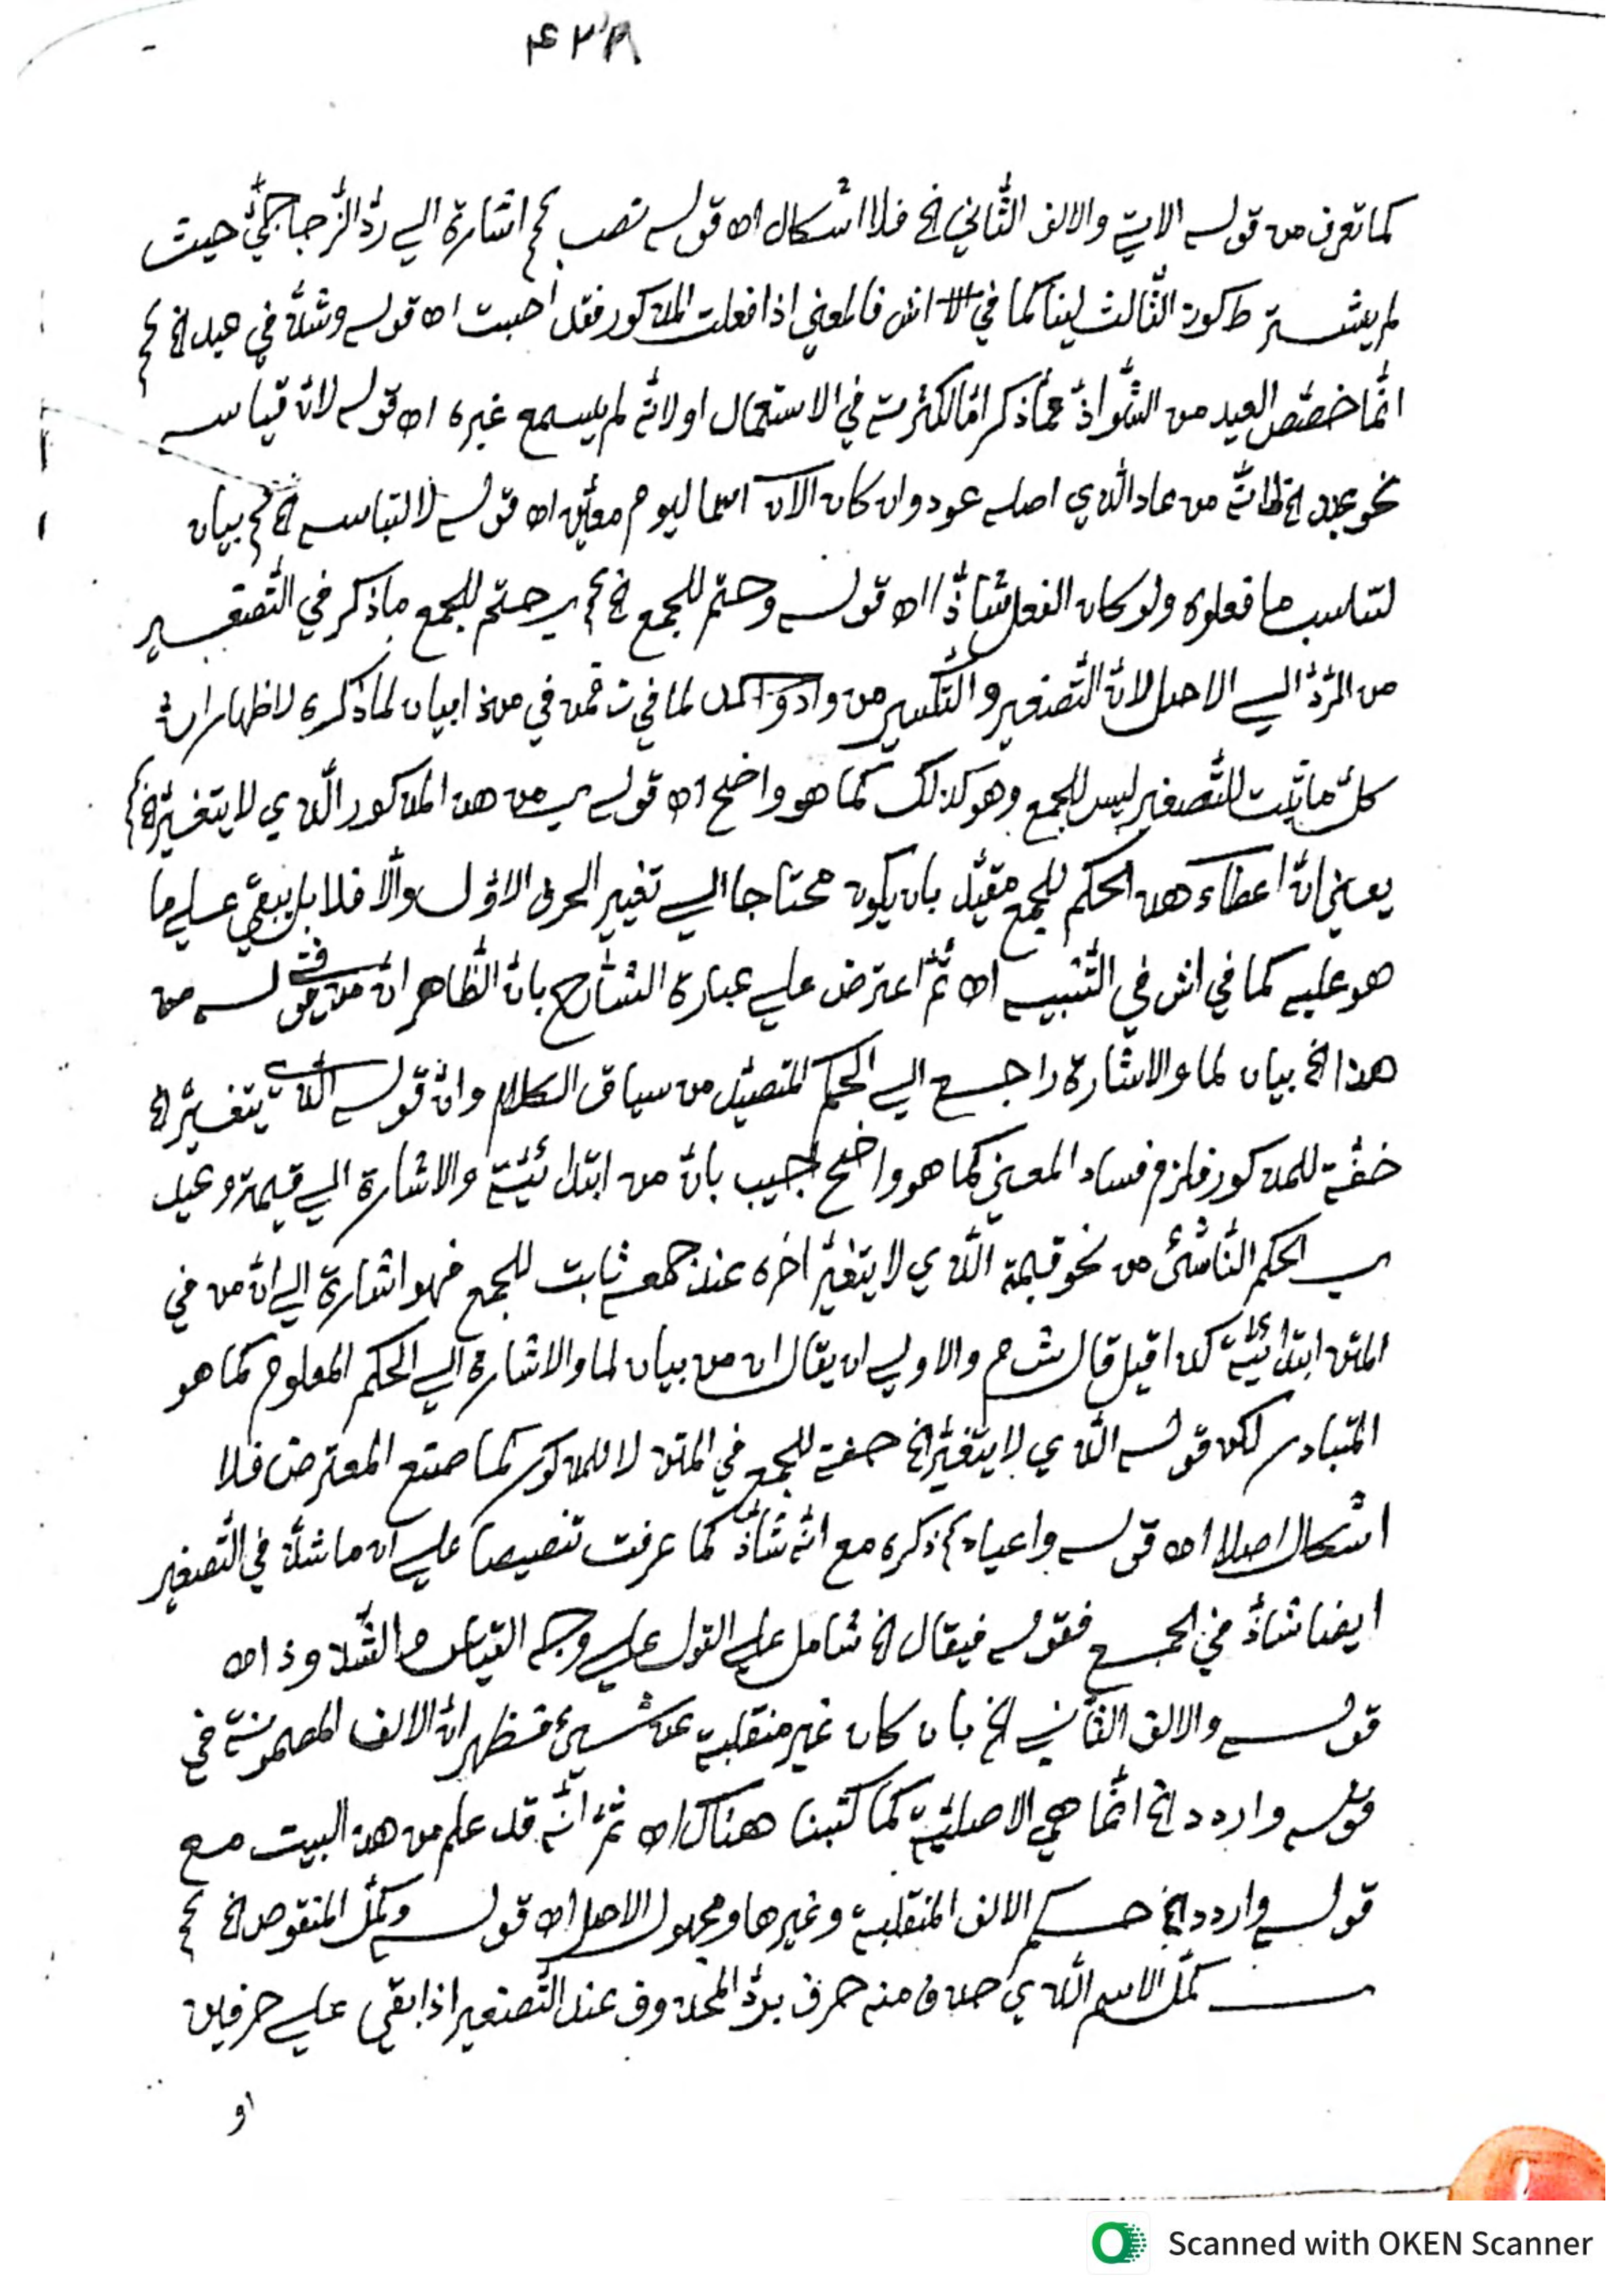 ۴۳۸
كما تعرف من قوله الاتي والالف الثاني الخ فلا اشكال اه قوله تصب اشارة الي ردّ الزّجاجيّ حيث
لم يشتر ط كون الثّالث لينا كما في اش فالمعني اذا فعلت المذكور فقد اصبت اه قوله وشذّ في عيد الخ
انّما خصّص العيد من الشّواذّ ممّا ذكر امّا لكثرته في الاستعمال او لانّه لم يسمع غيره اه قوله لانّه قياسه
نحو عيد الخ لانّه من عاد الّذي اصله عود وان كان الآن اسما ليوم معيّن اه قوله لالتباسه الخ بيان
لتناسب ما فعلوه ولو كان الفعل شاذّا اه قوله وحتم للجمع الخ اي حتم للجمع ما ذكر في التّصغير
من الرّدّ الي الاصل لانّ التّصغير والتّكسير من واد واحد لما في فمن في من ذا بيان لما ذكره لاظهار انّ
كلّ ما ثبت للتّصغير ليس للجمع وهو كذلك كما هو واضح اه قوله من هذ المذكور الّذي لا يتغيّر الخ
يعني انّ اعطاء هذ الحكم للجمع مقيّد بان يكون محتاجا الي تغيير الحرف الاوّل والّا فلا بل يبقي علي ما
هو عليه كما في اش في التّنبيه اه ثمّ اعترض علي عبارة الشّارح بانّ الظّاهر انّ من في قوله من
هذا الخ بيان لما والاشارة راجع الي الحكم المتصيّد من سياق الكلام وانّ قوله الّذي يتغيّر الخ
صفة للمذكور فلزم فساد المعني كما هو واضح اجيب بانّ من ابتدائيّة والاشارة الي قيمة وعيد
اي الحكم النّاشئ من نحو قيمة الّذي لا يتغيّر اخره عند جمعه ثابت للجمع فهو اشارة الي انّ من في
المتن ابتدائيّة كذا قيل قال ش م والاولي ان يقال ان من بيان لما والاشارة الي الحكم المعلوم كما هو
المتبادر لكن قوله الّذي لا يتغيّر الخ صفة للجمع في المتن لا للمذكور كما صنع المعترض فلا
اشكال اصلا اه قوله واعياد ذكره مع انّه شاذّ كما عرفت تنصيصا علي ان ما شذّ في التّصغير
ايضا شاذّ في الجمع فقوله فيقال الخ شامل علي القول علي وجه القياس والشّذوذ اه
قوله والالف الثّاني الخ بان كان غير منقلبة عن شيئ فظهر انّ الالف المضمونة في
قوله واردد الخ انّما هي الاصليّة كما كتبنا هناك اه ثمّ انّه قد علم من هذ البيت مع
قوله واردد الخ حكم الالف المنقلبة وغيرها ومجهول الاصل اه قوله وكمّل المنقوص الخ
كمّل الاسم الّذي حذف منه حرف بردّ المحذوف عند التّصغير اذا بقي علي حرفين
او
Scanned with OKEN Scanner